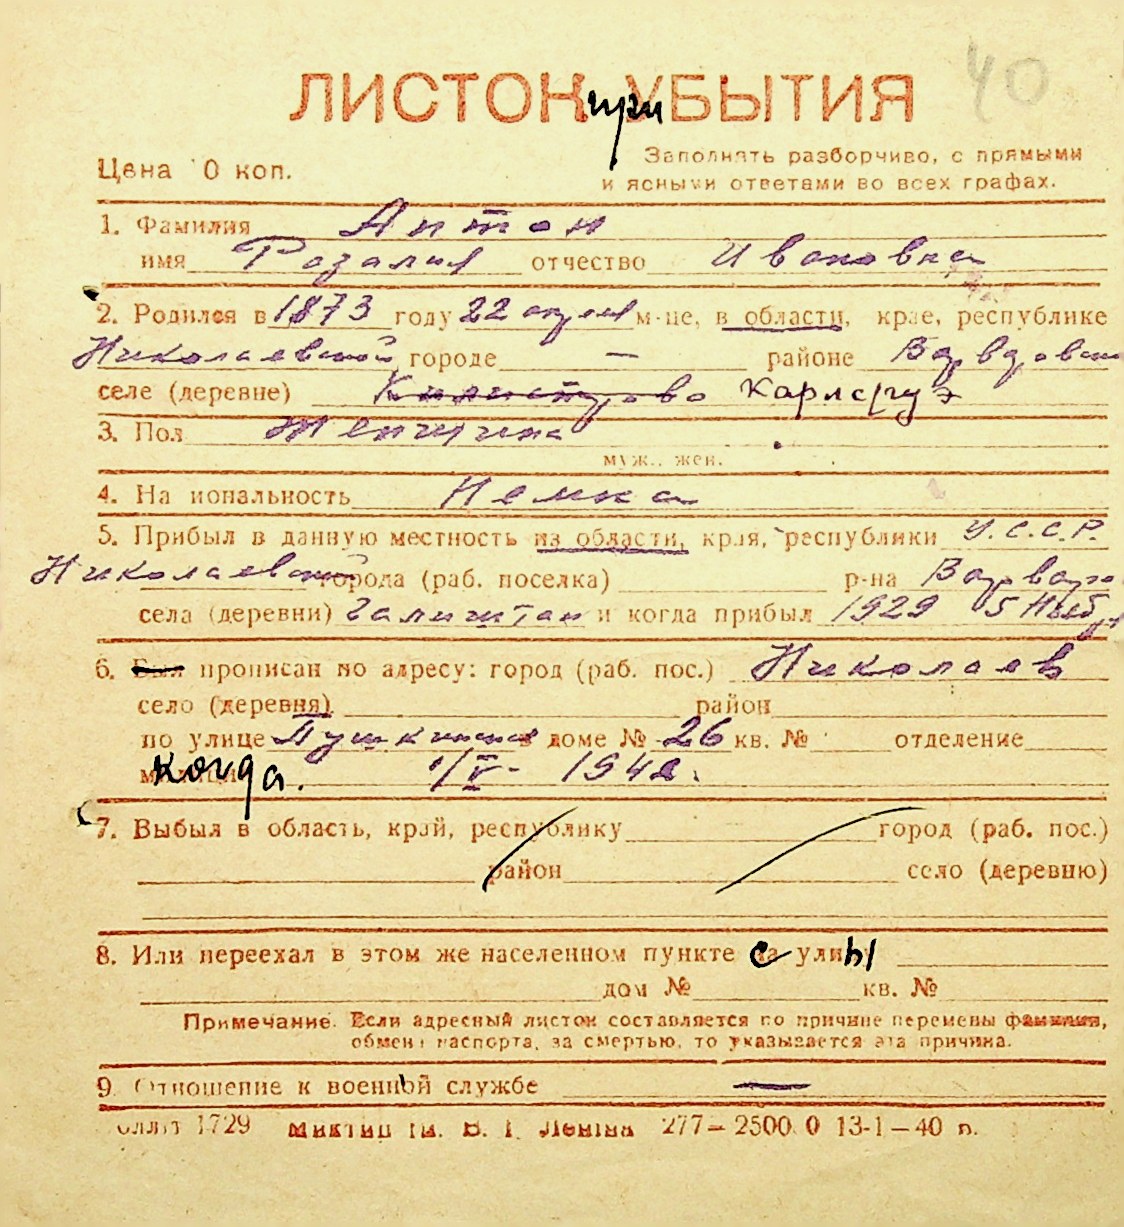 40
ЛИСТОК при УБЫТИЯ
Цена 0 коп.
Заполнять разборчиво, с прямыми
и ясными ответами во всех графах.
1. Фамилия Антон
имя Розалия отчество Ивановна
2. Родился в 1873 году 22 апреля м-це, в области, крае, республике
Николаевской городе — районе
селе (деревне) Карлсруэ
3. Пол Женщина
муж., жен.
4. На иональность Немка
5. Прибыл в данную местность из области, края, республики У.С.С.Р.
Николаевской города (раб. поселка) р-на Варваро
села (деревни) и когда прибыл 1929 5
6. Был прописан по адресу: город (раб. пос.) Николаев
село (деревня) район
по улице Пушкинская доме № 26 кв. № отделение
когда. 1/V- 1942.
7. Выбыл в область, край, республику город (раб. пос.)
район село (деревню)
8. Или переехал в этом же населенном пункте с улицы
дом № кв. №
Примечание. Если адресный листок составляется по причине перемены фамилия,
обмена паспорта, за смертью, то указывается эта причина.
9. Отношение к военной службе —
1729 им. В. И. Ленина 277—2500 0 13-1—40 п.